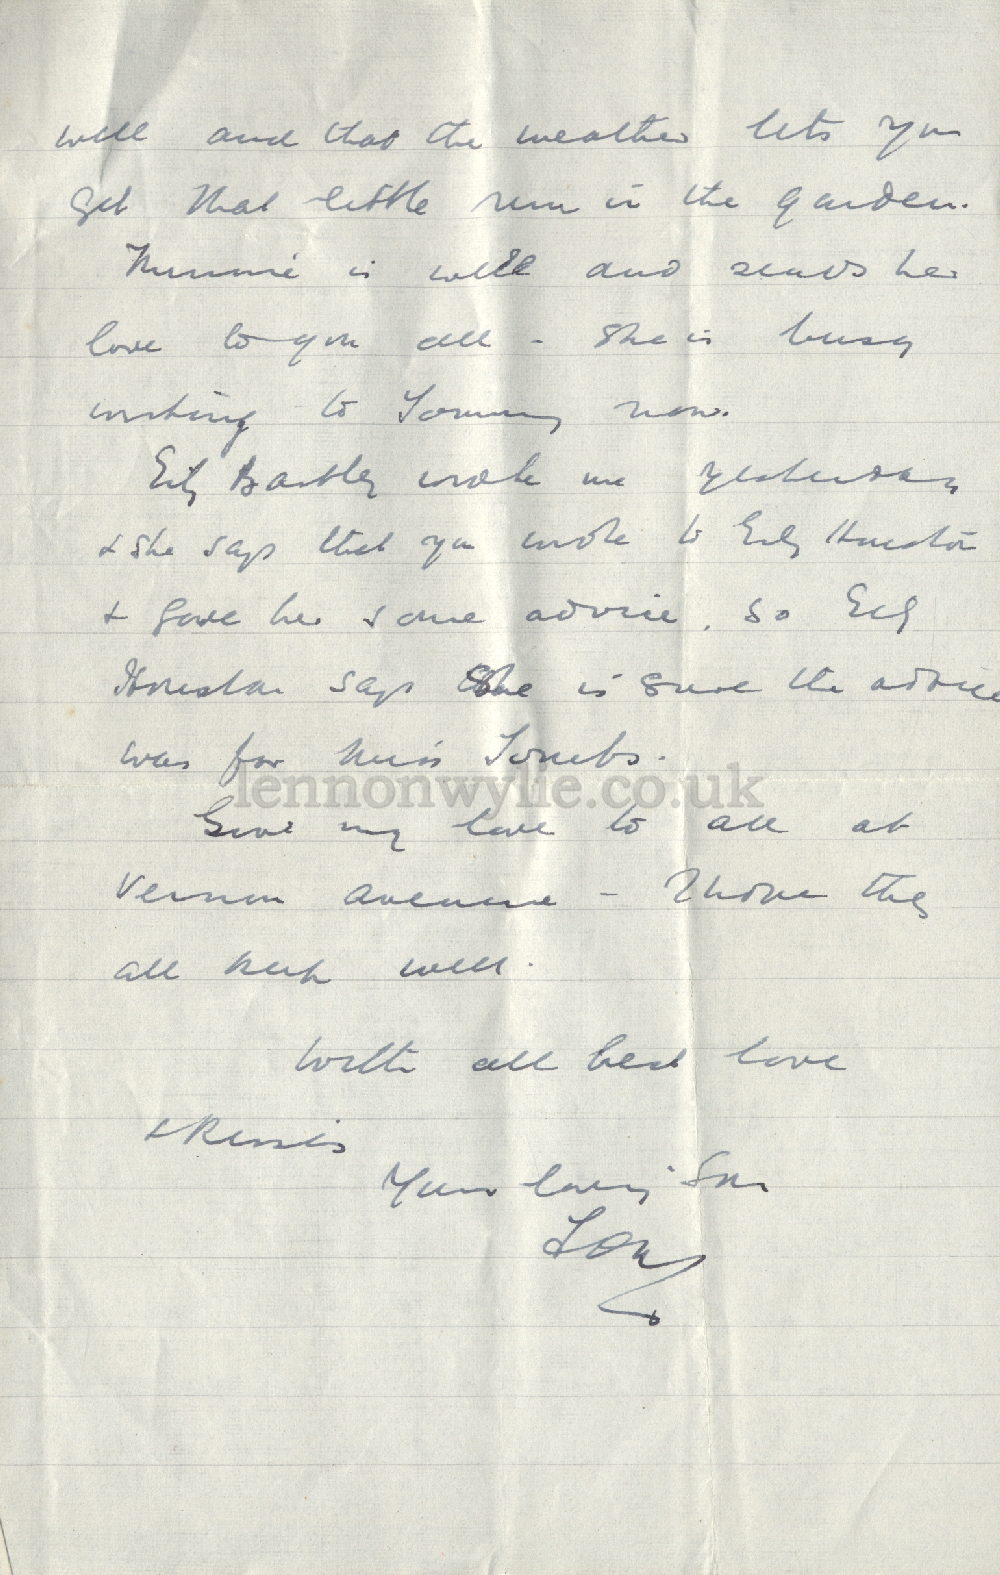 well and that the weather lets you
get that little run in the garden.
Minnie is well and sends her
love to you all - she is busy
writing to Tommy now.
Eily Bartley wrote me yesterday
& she says that you wrote to Eily Houston
& gave her some advice. So Eily
Houston says she is sure the advice
was for Miss Tombs.
lennonwylie.co.uk
Give my love to all at
Vernon avenue - I hope they
all keep well.
With all best love
& Kisses
Your loving Son
Tony